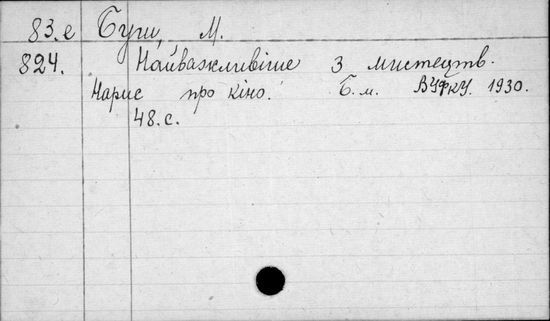 83.е Буш, М.
824. Найважливіше з мистецтв.
Нарис про кіно. Б.м. ВУФКУ. 1930.
48.с.